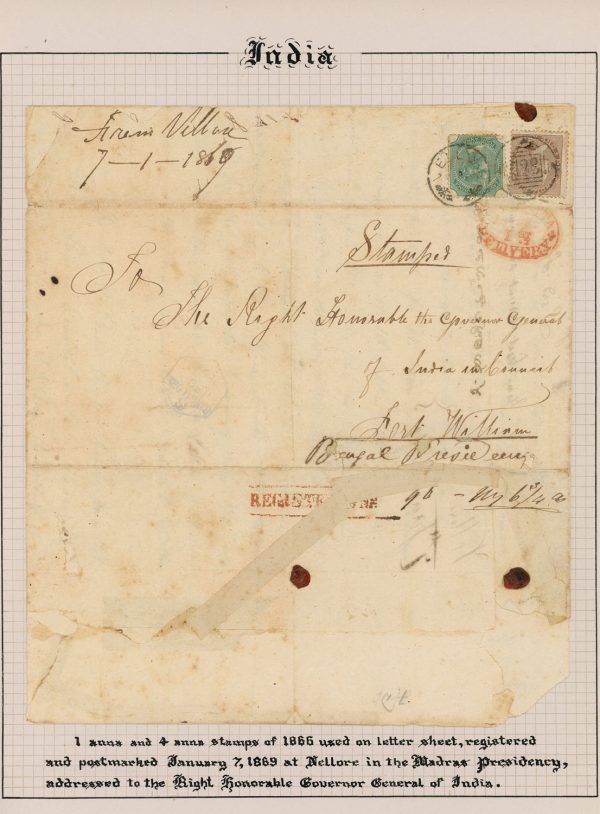 India
From Vellore
7-1-1869
Stamped
To
The Right Honorable the Governor General
of India in Council
Fort William
Bengal Presidency
REGISTERED
1 anna and 4 anna stamps of 1866 used on letter sheet, registered
and postmarked January 7, 1869 at Nellore in the Madras Presidency,
addressed to the Right Honorable Governor General of India.